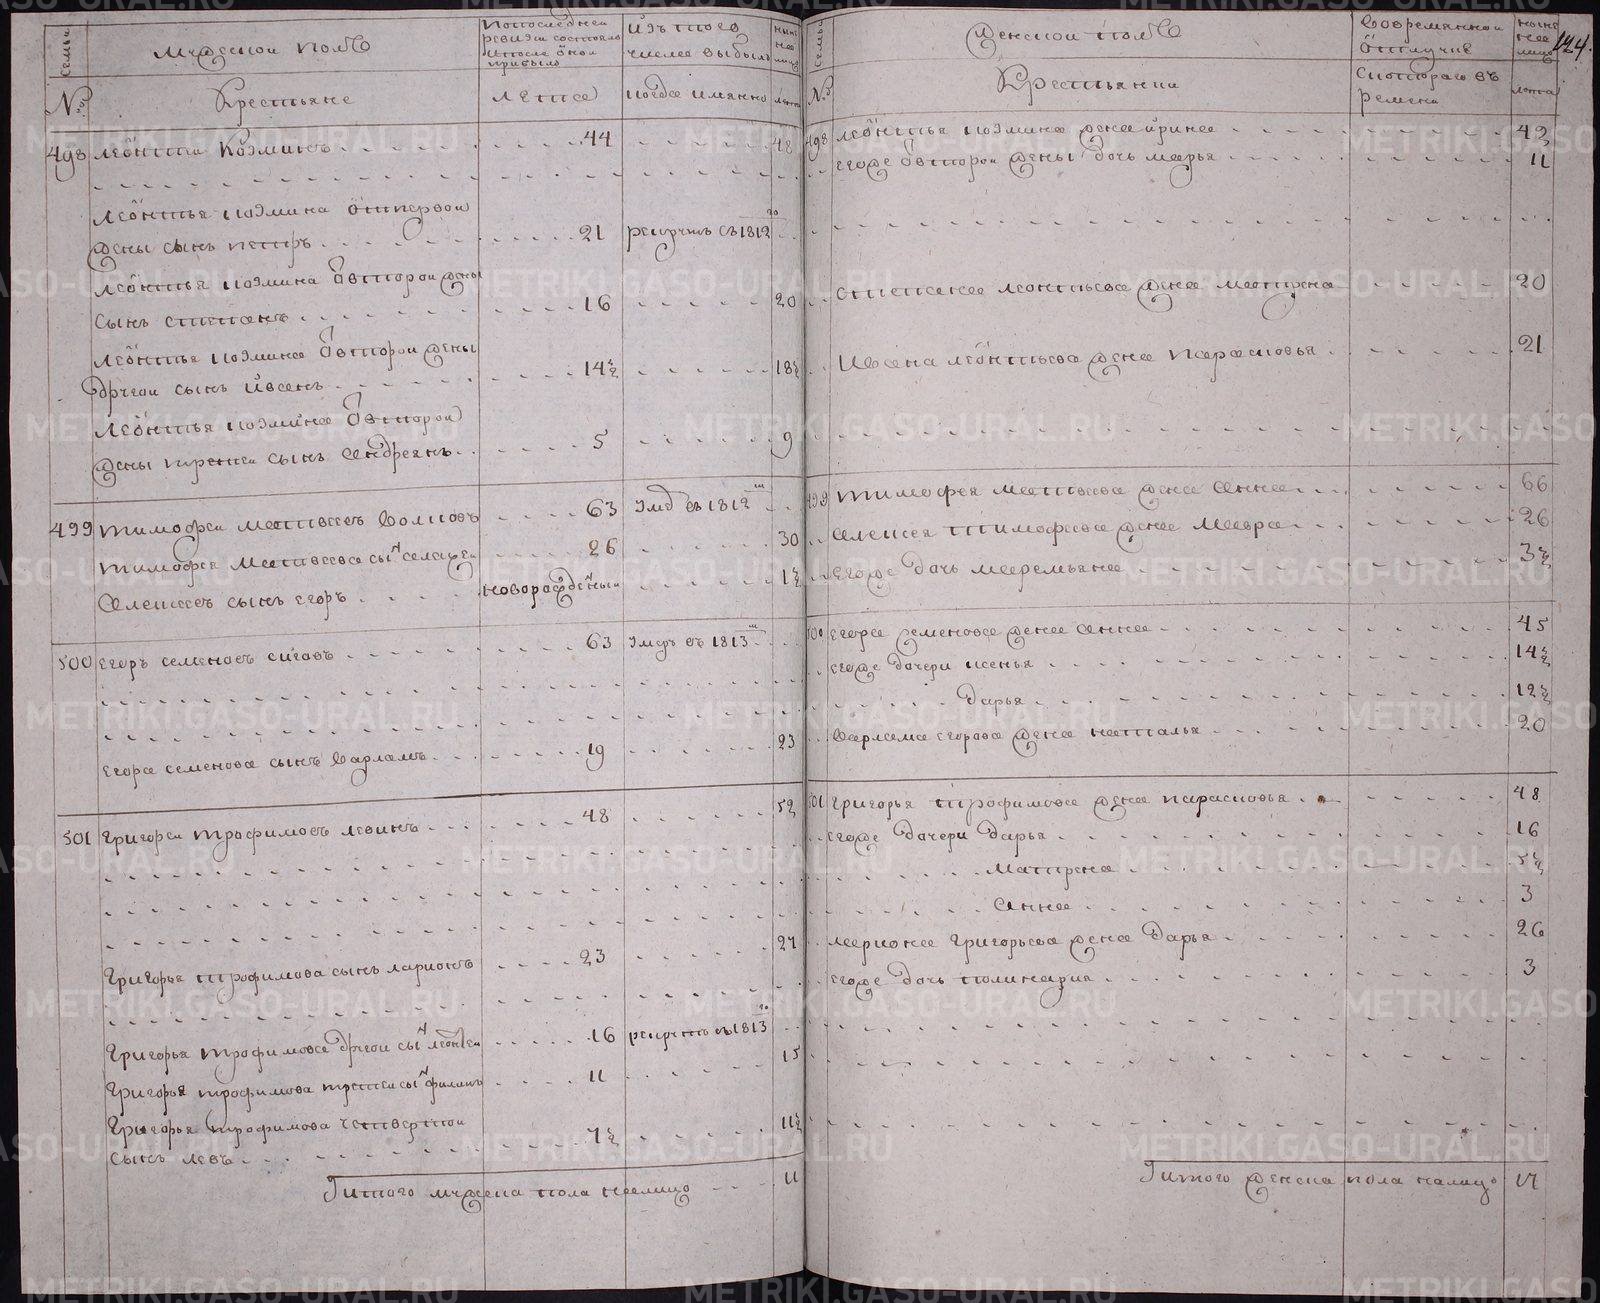 семьи
мужескои полъ
Попоследнеи
ревизии состояло
ипосле оной
прибыло
Изъ того
числа выбыло
ныне
на
лицо
№
Крестьяне
лета
когда имянно
лета
498 леонтеи Козминъ 44 48
леонтья козмина отпервои
жены сынъ петръ 21 рекрутъ въ 1812го
леонтья козмина отвторои жены
сынъ степанъ 16 20
леонтья козмина отвторои жены
другои сынъ иванъ 14½ 18½
леонтья козмина отвторои
жены третеи сынъ андреянъ 5 9
499 тимофеи матвеевъ волковъ 63 умр въ 1812м
тимофея матвеева сынъ алексеи 26 30
алексеевъ сынъ егоръ новорожденыи 1½
500 егоръ семеновъ сиговъ 63 умеръ въ 1813м
егора семенова сынъ варламъ 19 23
501 григореи трофимовъ левинъ 48 52
григорья трофимова сынъ ларионъ 23 27
григорья трофимова другои сынъ леонтеи 16 рекрутъ въ 1813го
григорья трофимова третеи сынъ филипъ 11 15
григорья трофимова четвертои
сынъ левъ 7½ 11½
Итого мужеска пола налицо 11
семьи
женскои полъ
Вовременнои
отлучке
ныне
на
лицо
124.
№
Крестьянки
Скотораго въ
ремени
лета
498 леонтья козмина жена ирина 43
егоже отвторои жены дочь марья 11
степана леонтьева жена матрена 20
Ивана леонтьева жена парасковья 21
499 тимофея матвеева жена анна 66
алексея тимофеева жена мавра 26
егоже дочь маремьяна 3½
500 егора семенова жена анна 45
егоже дочери ксенья 14½
дарья 12½
варлама егорова жена наталья 20
501 григорья трофимова жена парасковья 48
егоже дочери дарья 16
матрена 5½
анна 3
лариона григорьева жена дарья 26
егоже дочь полинария 3
Итого женска пола налицо 17
METRIKI.GASO-URAL.RU